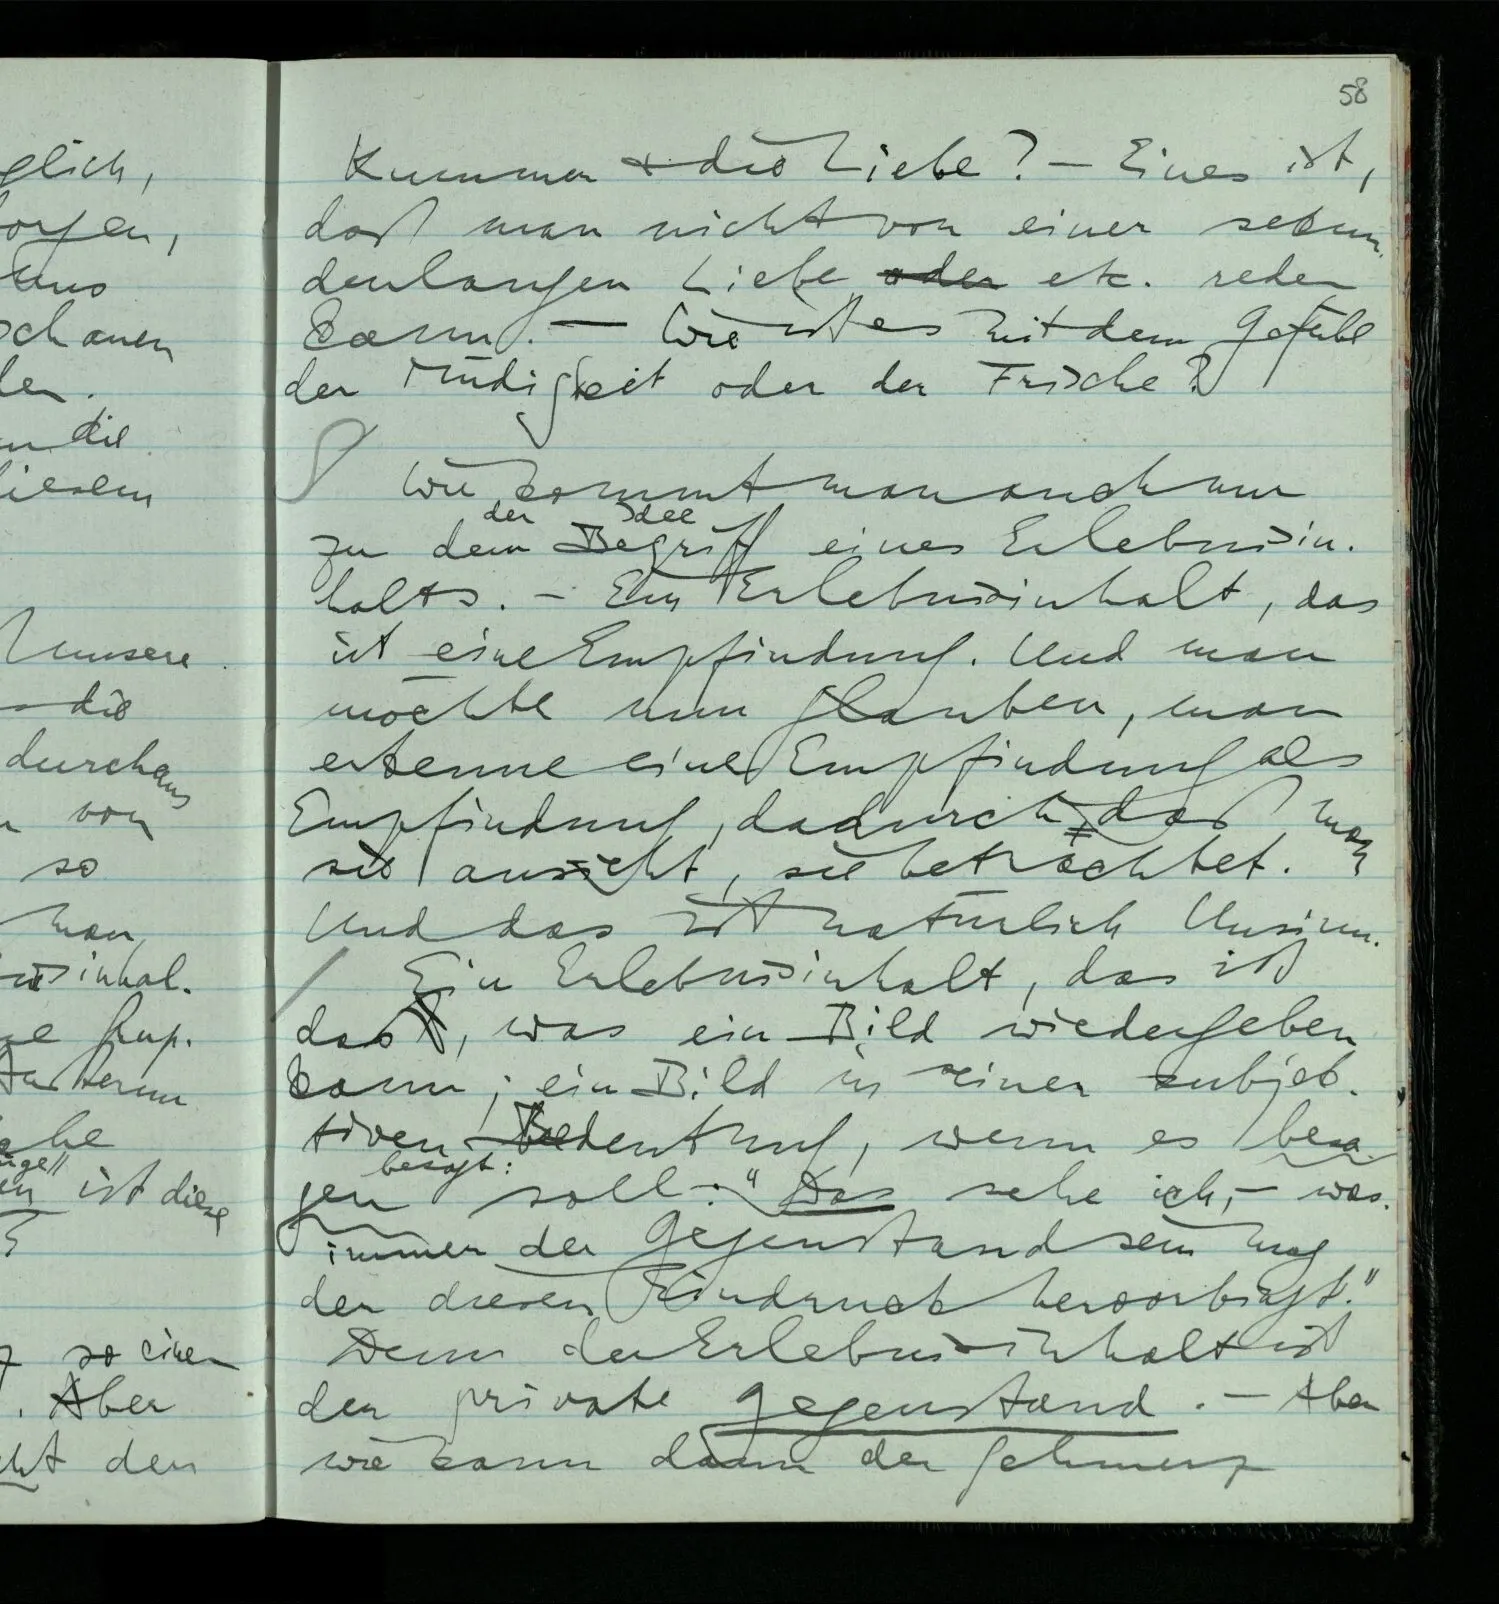 glich,
orgen,
uns
schauen
den.
die
diesem
Unsere
die
durchaus
von
so
man
inhal-
ist diese
so einen
. Aber
den
58
Kummer & die Liebe? — Eines ist,
daß man nicht von einer sekun-
denlangen Liebe oder etc. reden
kann. — Wie ist es mit dem Gefühl
der Müdigkeit oder der Frische?
Wie kommt man auch nur
der Idee
zu dem Begriff eines Erlebnisin-
halts. – Ein Erlebnisinhalt, das
ist eine Empfindung. Und man
möchte nun glauben, man
erkenne eine Empfindung als
Empfindung, dadurch daß man
sie ansieht, sie betrachtet.
Und das ist natürlich Unsinn.
/ Ein Erlebnisinhalt, das ist
das, was ein Bild wiedergeben
kann; ein Bild in seiner subjek-
tiven Bedeutung, wenn es besa-
besagt:
gen soll: "Das sehe ich, – was
immer der Gegenstand sein mag
der diesen Eindruck hervorbringt."
Denn der Erlebnisinhalt ist
der private Gegenstand. – Aber
wie kann dann der Schmerz